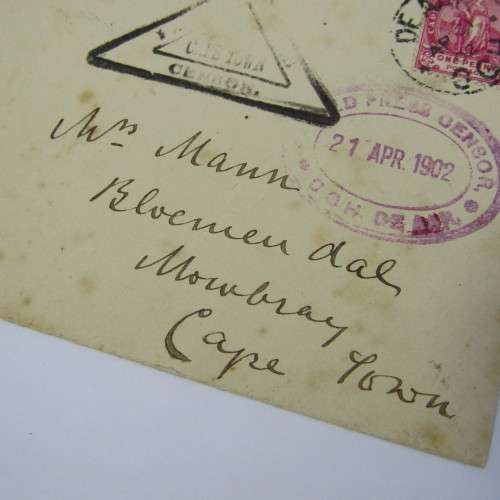 CAPE TOWN
CENSOR.
DE A
ONE PENNY
PRESS CENSOR
21 APR. 1902
Mrs Mann
Bloemendal
Mowbray
Cape Town